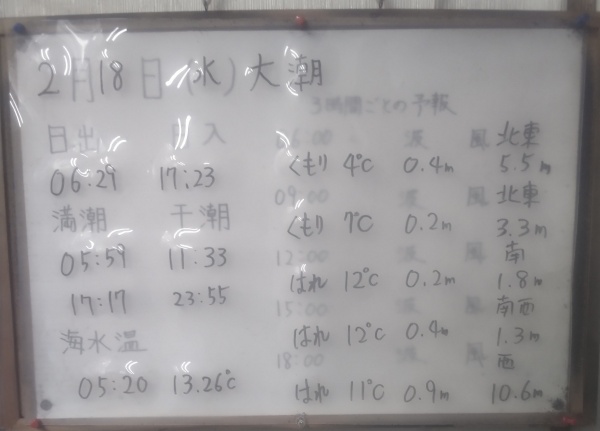 2月18日(水)大潮
3時間ごとの予報
日出 日入
06:29 17:23
満潮 干潮
05:59 11:33
17:17 23:55
海水温
05:20 13.26℃
06:00 波 風 北東
くもり 4℃ 0.4m 5.5m
09:00 波 風 北東
くもり 7℃ 0.2m 3.3m
12:00 波 風 南
はれ 12℃ 0.2m 1.8m
15:00 波 風 南西
はれ 12℃ 0.4m 1.3m
18:00 波 風 西
はれ 11℃ 0.9m 10.6m